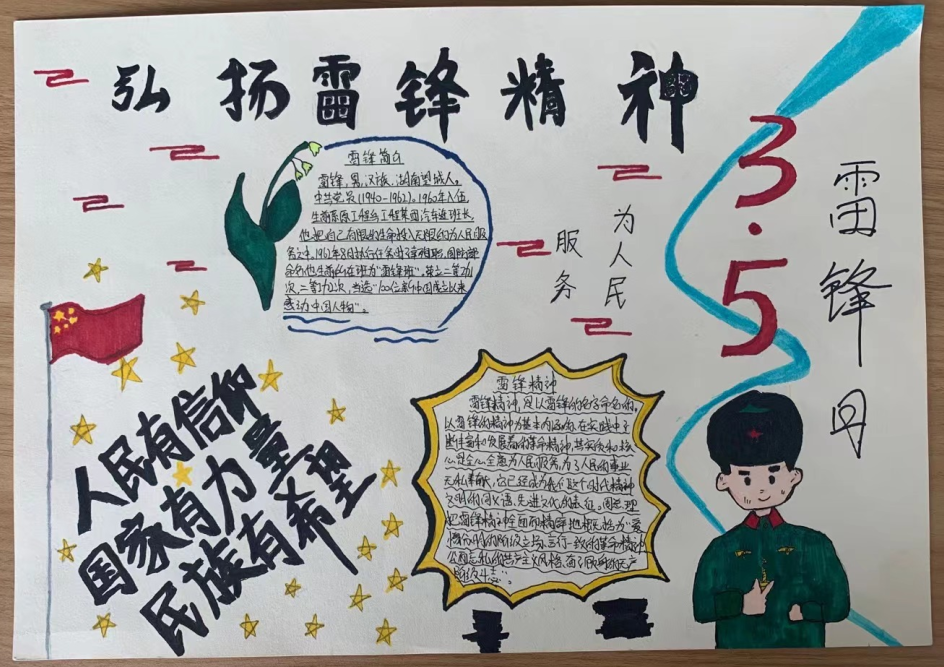 弘扬雷锋精神
3.5
雷锋月
雷锋简介
雷锋,男,汉族,湖南望城人。
中共党员(1940-1962)。1960年入伍,
生前系原工程兵工程某团汽车连班长,
他把自己有限的生命投入无限的为人民服
务之中。
感动中国人物"。
为人民
服务
人民有信仰
国家有力量
民族有希望
雷锋精神
雷锋精神,是以雷锋的名字命名的,
以雷锋的精神为基本内涵的,在实践中不
断丰富和发展着的革命精神,其实质和核
心是全心全意为人民服务,为了人民的事业
无私奉献,它已经成为我们这个时代精神
文明的同义语,先进文化的表征。周总理
把雷锋精神全面而精辟地概括为"爱
憎分明的阶级立场、言行一致的革命精神
公而忘私的共产主义风格、奋不顾身的无产
阶级斗志"。